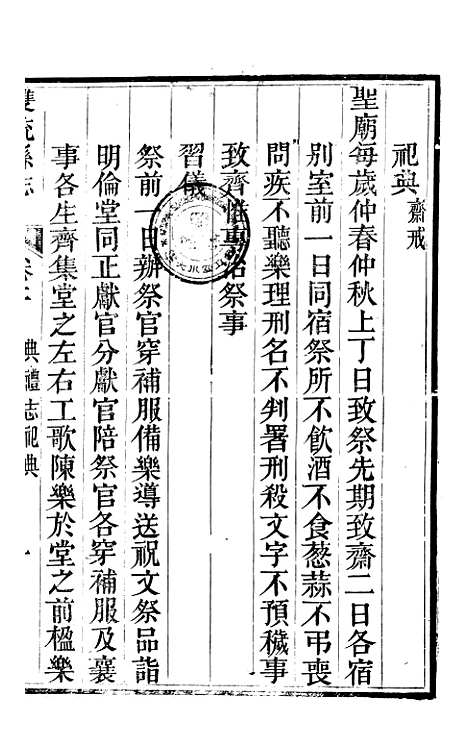 祀典齋戒
聖廟每歲仲春仲秋上丁日致祭先期致齋二日各宿
別室前一日同宿祭所不飮酒不食葱蒜不弔喪
問疾不聽樂理刑名不判署刑殺文字不預穢事
致齊惟專治祭事
習儀
祭前一日辦祭官穿補服備樂導送祝文祭品詣
明倫堂同正獻官分獻官陪祭官各穿補服及襄
事各生齊集堂之左右工歌陳樂於堂之前楹樂
雙流縣志 卷二 典禮志祀典 一